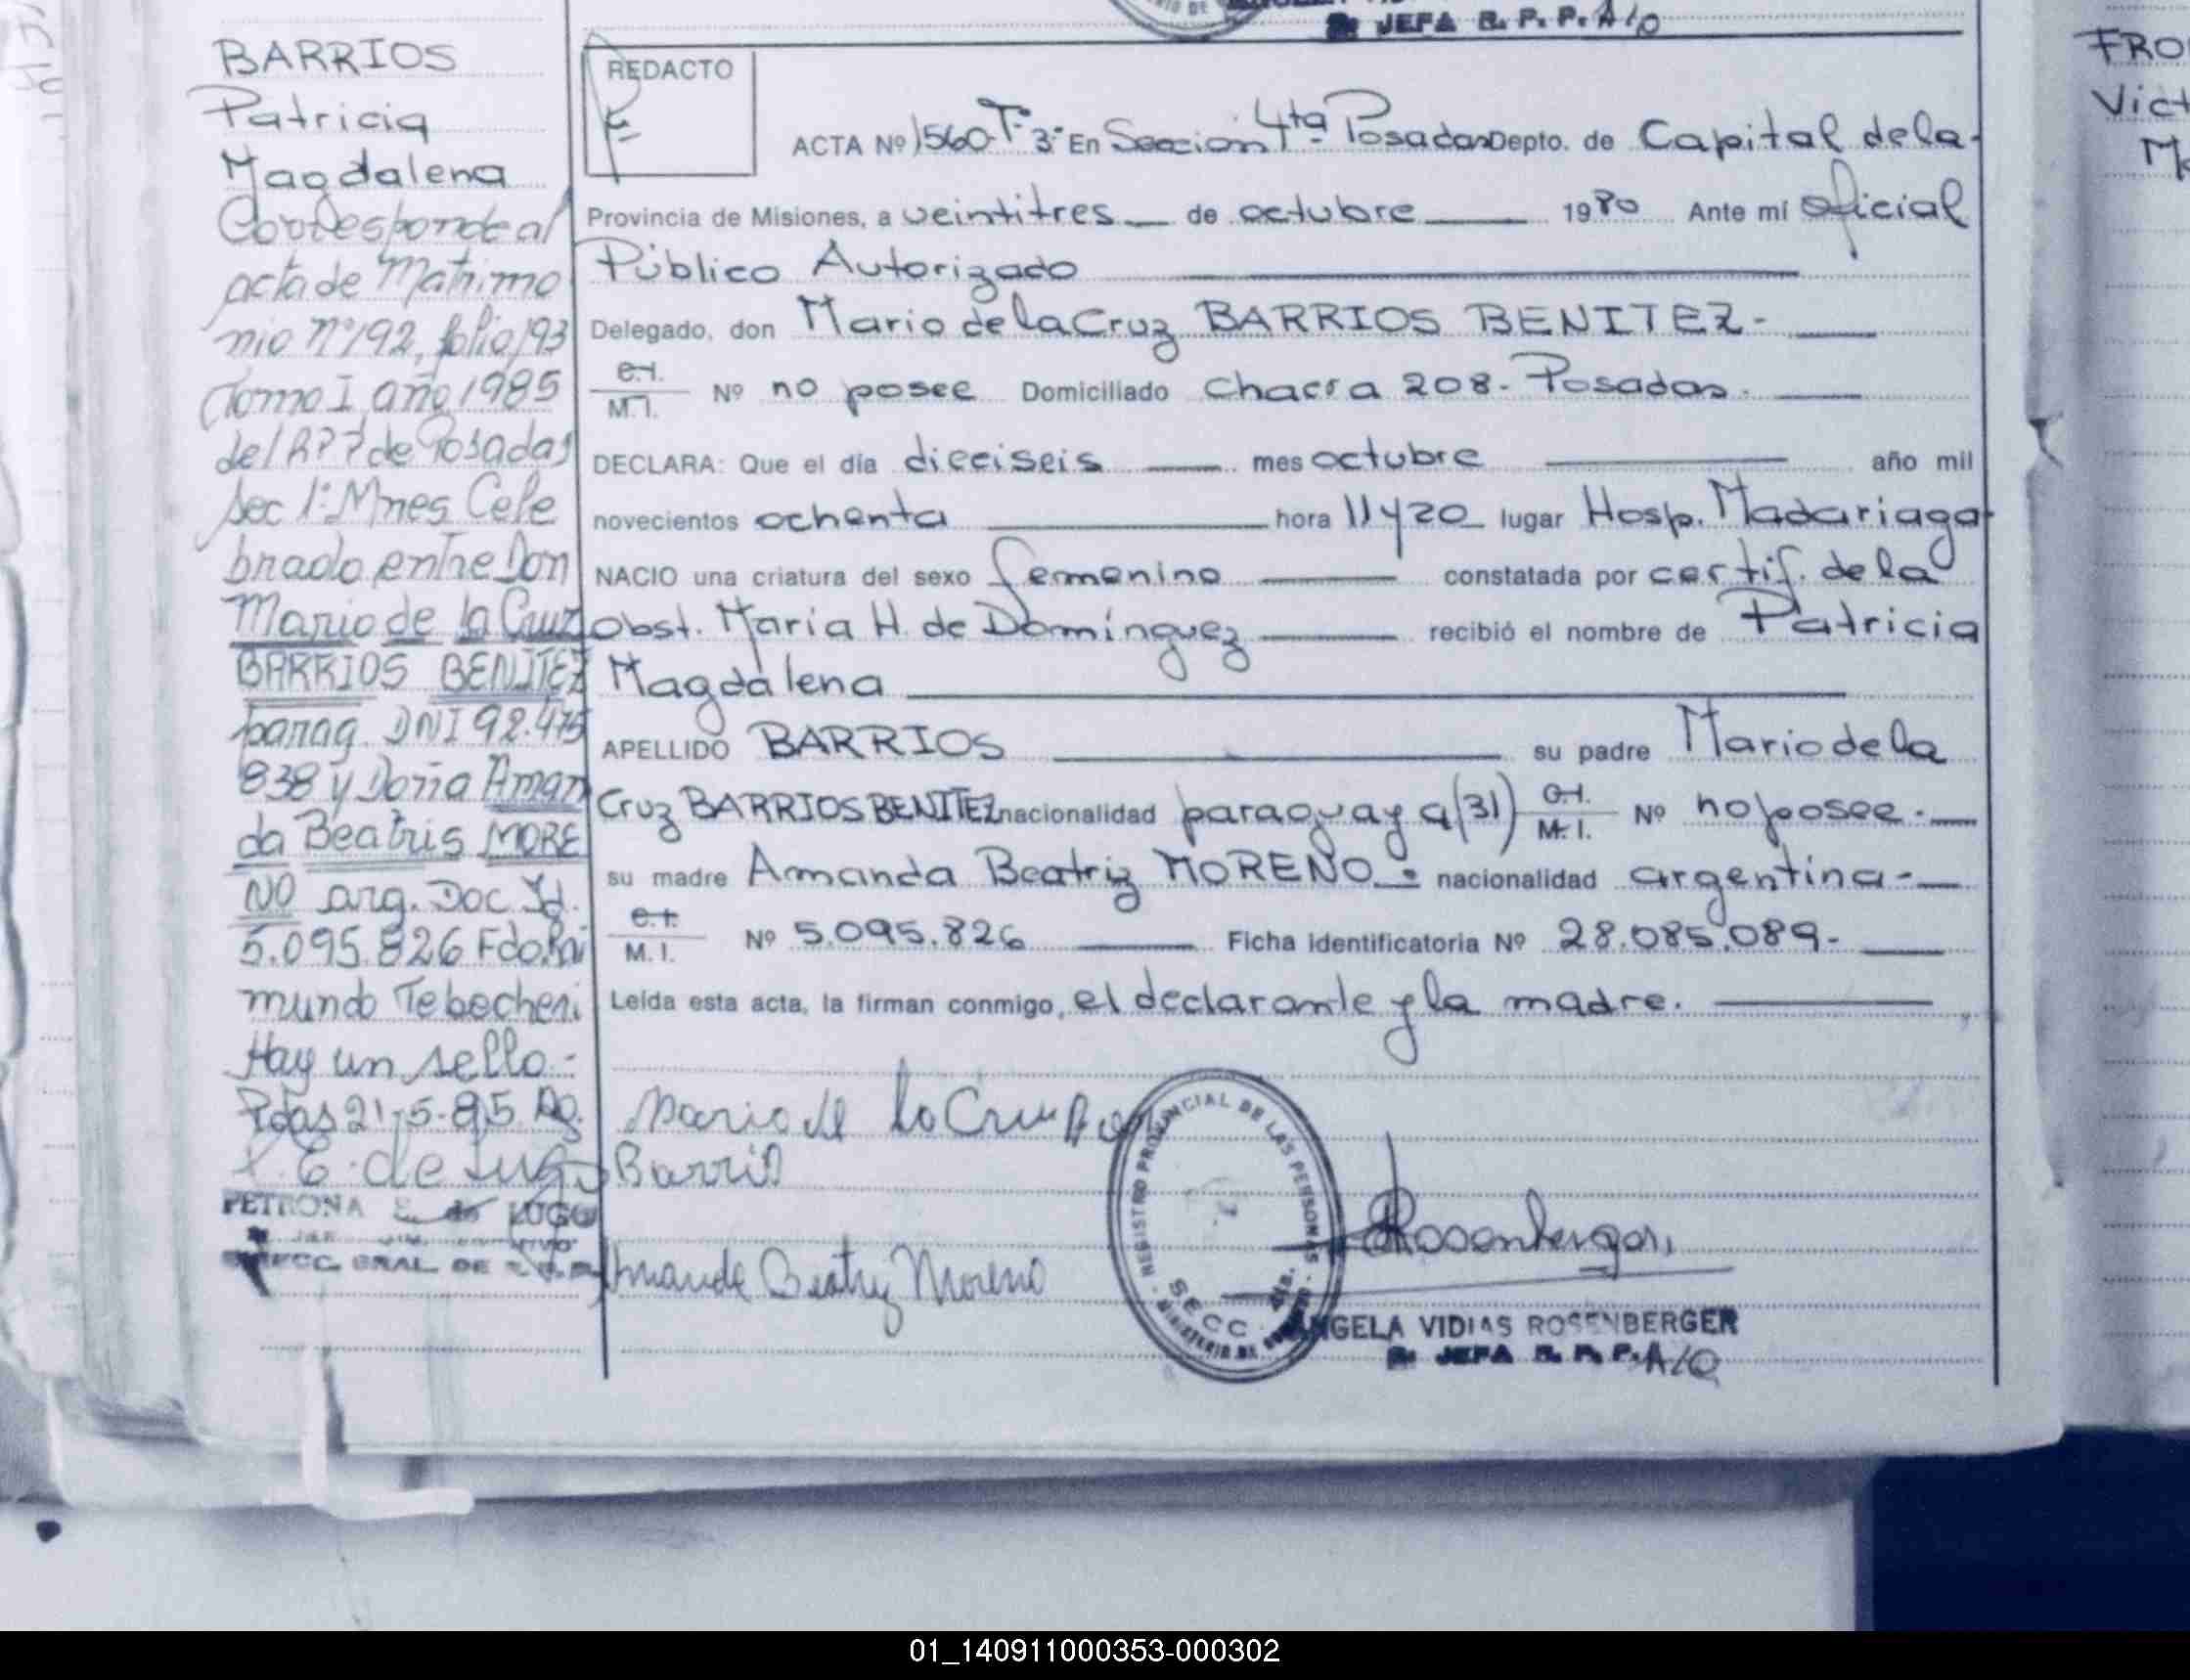 JEFA R. P. P. A/O
BARRIOS
Patricia
Magdalena
Corresponde al
acta de Matrimo
nio Nº 192, folio 193
Tomo I año 1985
del R.P.P de Posadas
sec 1ª Mnes Cele
brado entre Don
Mario de la Cruz
BARRIOS BENITEZ
parag. DNI 92.475
838 y Doña Aman
da Beatris MORE
NO arg. Doc. Id.
5.095.826 Fdo. Rai
mundo Tebocheri
Hay un sello.-
Pdas 21-5-85
E. de Lugo
PETRONA E. de LUGO
GRAL DE
REDACTO
ACTA Nº 1560-Tº 3º En Sección 4ta Posadas Depto. de Capital de la-
Provincia de Misiones, a veintitres de octubre 1980 Ante mí Oficial
Público Autorizado
Delegado, don Mario de la Cruz BARRIOS BENITEZ-
C.I.
M.I. Nº no posee Domiciliado Chacra 208- Posadas.
DECLARA: Que el día dieciseis mes octubre año mil
novecientos ochenta hora 11 y 20 lugar Hosp. Madariaga
NACIO una criatura del sexo femenino constatada por certif. de la
obst. María H. de Domínguez recibió el nombre de Patricia
Magdalena
APELLIDO BARRIOS su padre Mario de la
Cruz BARRIOS BENITEZ nacionalidad paraguaya (31) C.I.
M.I. Nº no posee.-
su madre Amanda Beatriz MORENO.- nacionalidad argentina-
C.I.
M.I. Nº 5.095.826 Ficha identificatoria Nº 28.085.089-
Leída esta acta, la firman conmigo, el declarante y la madre.
Mario de la Cruz
Barrios
Amanda Beatriz Moreno
REGISTRO PROVINCIAL DE LAS PERSONAS
SECC. 4ta.
MINISTERIO DE GOBIERNO
Rosenberger
ANGELA VIDIAS ROSENBERGER
JEFA R. P. P. A/O
FRO
Vict
Ma
01_140911000353-000302